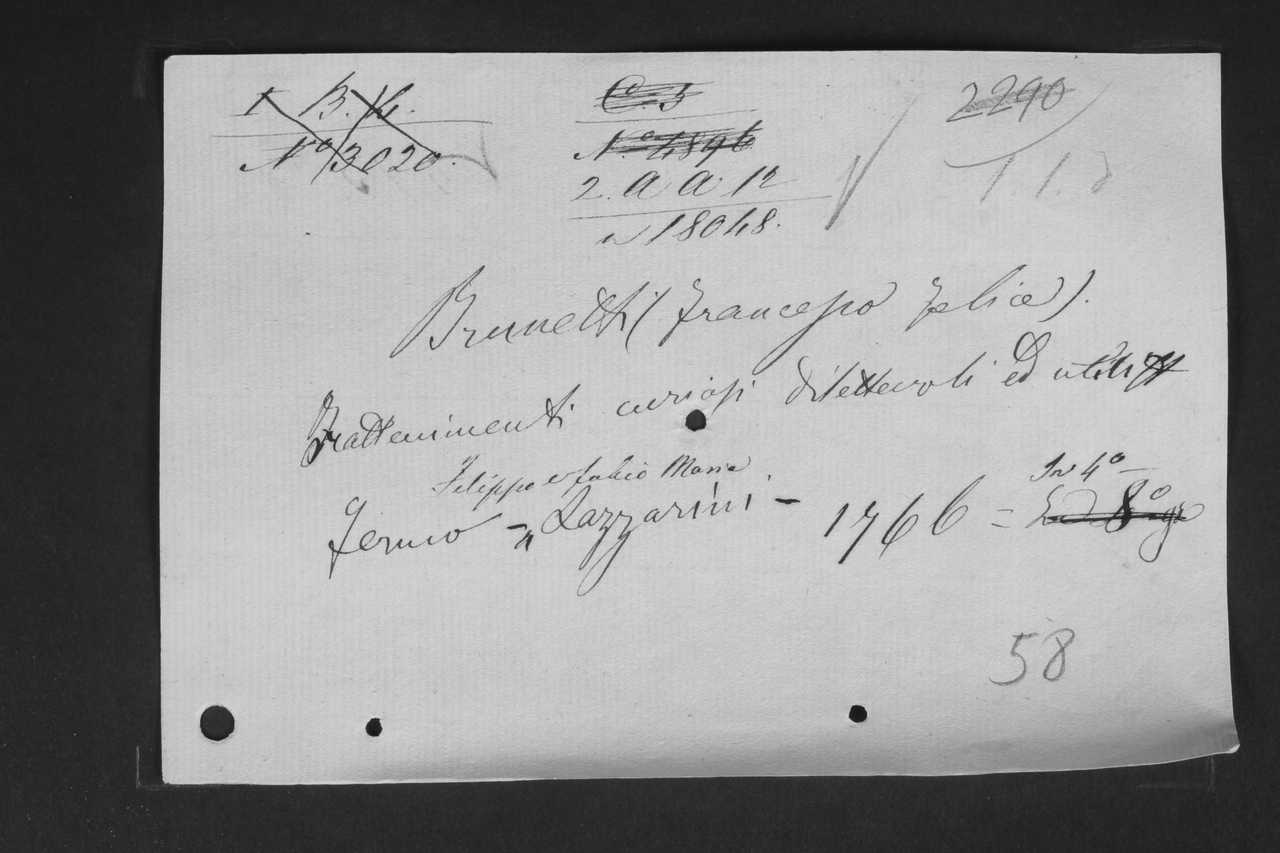 1 B. 4.
Nº 3020.
C 3
N.º 4896
2. a a 12
n 18048.
2290
1 1. 2
Brunetti (Francesco Felice).
Trattenimenti curiosi dilettevoli ed utili
Filippo e Fabio Maria
Fermo - Lazzarini - 1766 = In 4º
8º gr
58